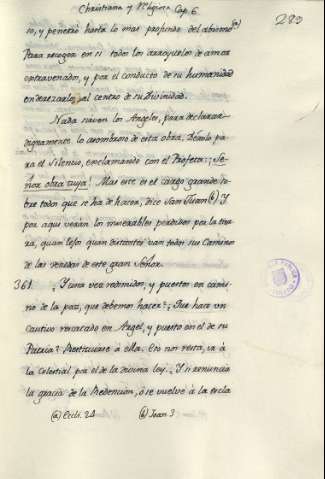 Christiana y Mystica Cap. 6
289
so, y penetró hasta lo mas profundo del abismo (a)
Para recoger en si todos los arroyuelos de amor
extravenados, y por el conducto de su humanidad
enderezarlos al centro de su Divinidad.
Nada saven los Angeles, para declarar
dignamente lo asombroso de esta obra. Demos pa
ra el Silencio, exclamando con el Profeta: ¡Se-
ñor, obra tuya! Mas este es el cargo grande so-
bre todo que se ha de hacer, dice San Juan (b) Y
por aqui verán los miserables perdidos por la tier
ra, quan lejos quan distantes van todos sus Caminos
de las veredas de este gran Señor.
361. Y una vez redimidos, y puestos en cami-
no de la paz, que debemos hacer? ¿Que hace un
cautivo rescatado en Argel, y puesto en el de su
Patria? Restituirse á ella. Esto nos resta, ir á
la Celestial por el de la divina ley. Y si renuncia
la gracia de la Redencion, ó se vuelve á la escla
(a) Eccli. 24 (b) Joan 3